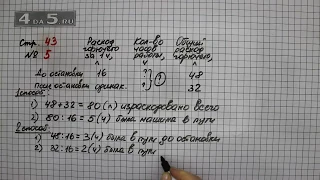 4DA5.RU
Стр. 43 Расход Кол-во Общий
№ 5 горючего часов расход
за 1 ч, работы, горючего,
До остановки 16 ? 48
После остановки одинак. ? 32
1 способ:
1) 48+32=80 (л) израсходовано всего
2) 80:16=5 (ч) была машина в пути
2 способ:
1) 48:16=3 (ч) была в пути до остановки
2) 32:16=2 (ч) была в пути